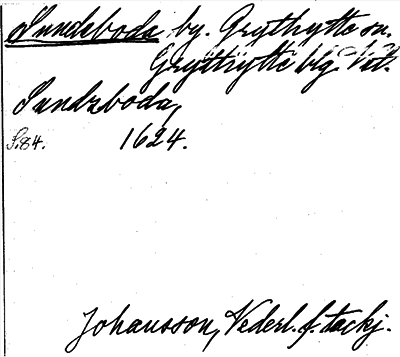 Sundeboda, by. Grythytte sn.
Grythytte blg. Vstm.
Sundzboda,
S. 84. 1624.
Johansson, Vederl. f. tackj.